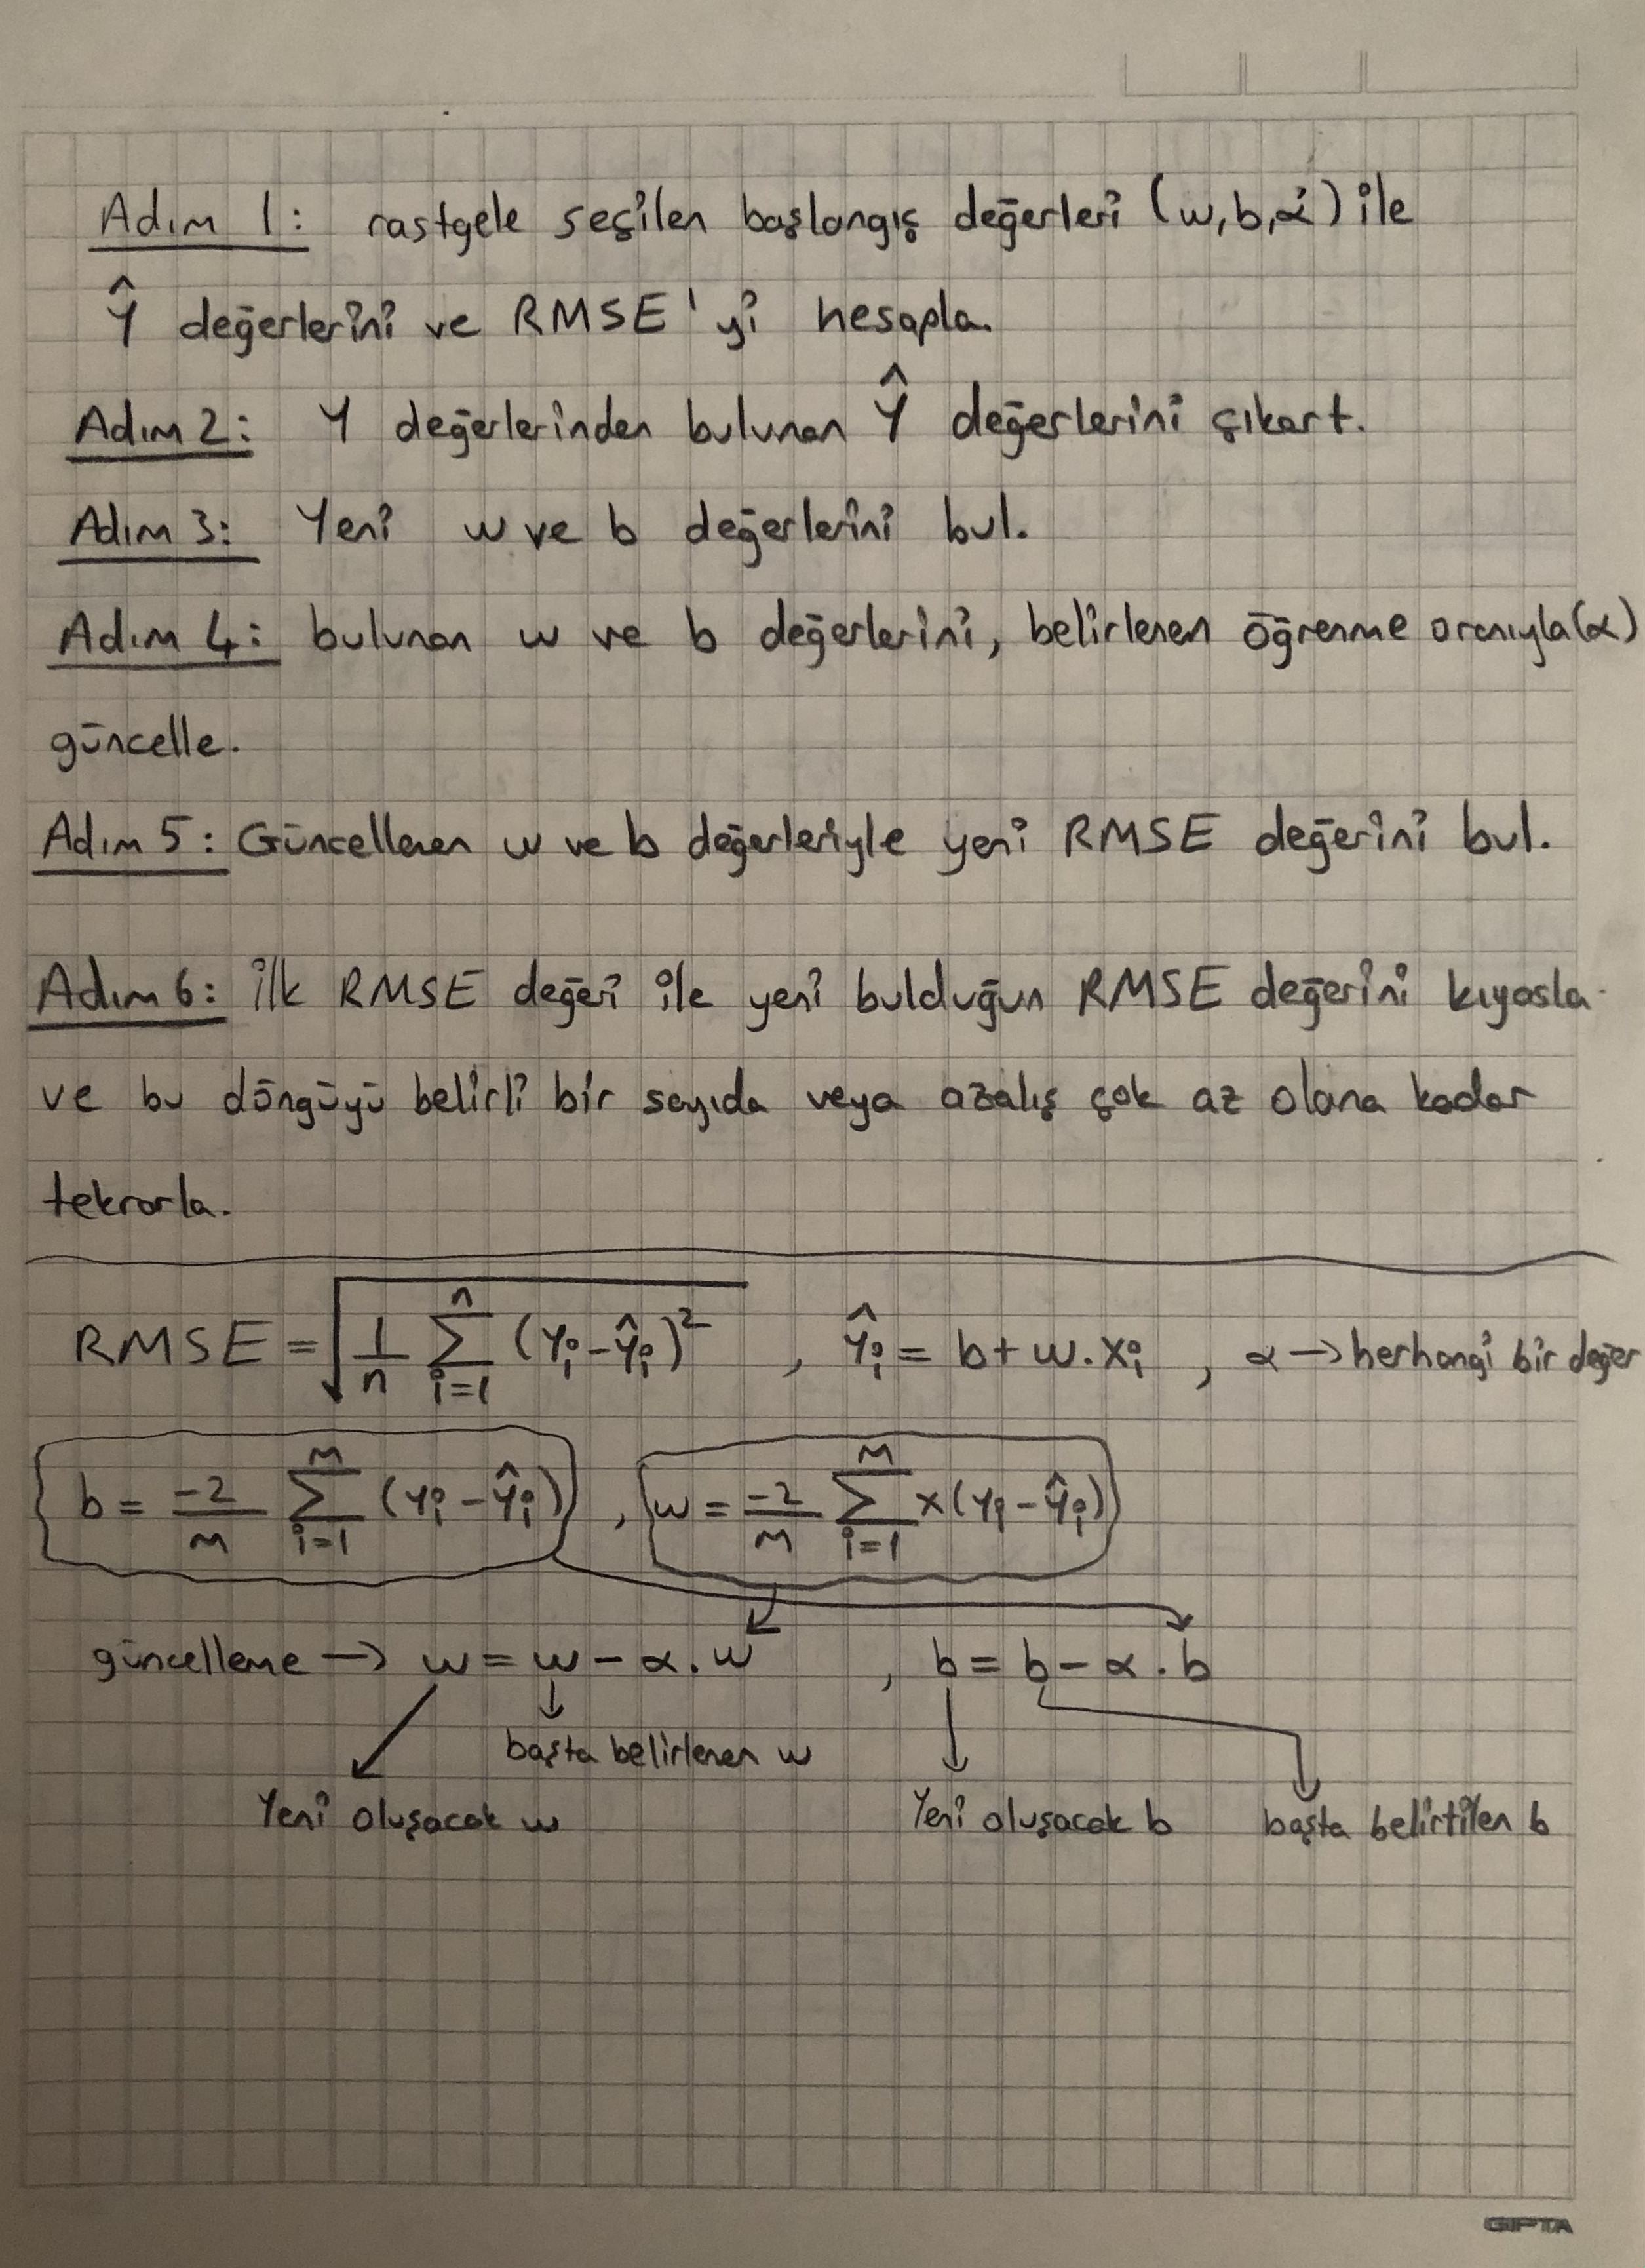 Adım 1: rastgele seçilen başlangıç değerleri (w,b,α) ile
Ŷ değerlerini ve RMSE'yi hesapla.
Adım 2: Y değerlerinden bulunan Ŷ değerlerini çıkart.
Adım 3: Yeni w ve b değerlerini bul.
Adım 4: bulunan w ve b değerlerini, belirlenen öğrenme oranıyla(α)
güncelle.
Adım 5: Güncellenen w ve b değerleriyle yeni RMSE değerini bul.
Adım 6: ilk RMSE değeri ile yeni bulduğun RMSE değerini kıyasla
ve bu döngüyü belirli bir sayıda veya azalış çok az olana kadar
tekrarla.
RMSE = √(1/n Σ_{i=1}^{n} (yᵢ-ŷᵢ)²) , ŷᵢ = b + w.xᵢ , α → herhangi bir değer
b = -2/m Σ_{i=1}^{m} (yᵢ-ŷᵢ) , w = -2/m Σ_{i=1}^{m} x(yᵢ-ŷᵢ)
güncelleme → w = w - α.w , b = b - α.b
başta belirlenen w
Yeni oluşacak w Yeni oluşacak b başta belirtilen b
GIPTA